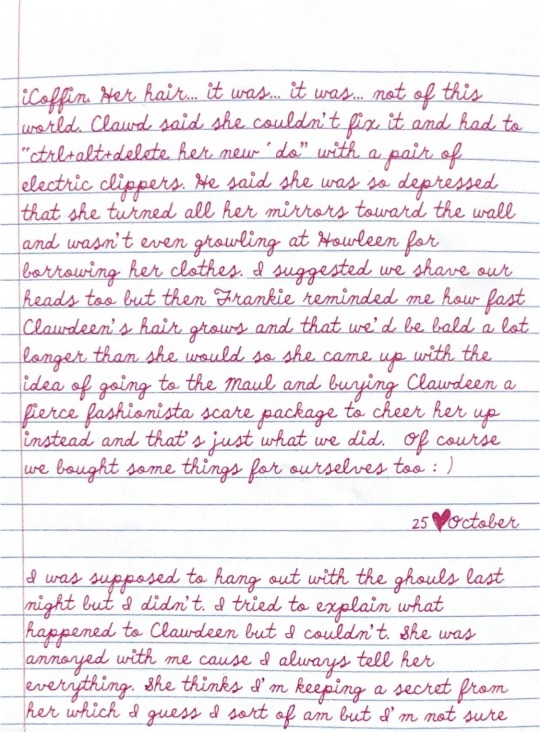 iCoffin. Her hair... it was... it was... not of this
world. Clawd said she couldn't fix it and had to
"ctrl+alt+delete her new 'do" with a pair of
electric clippers. He said she was so depressed
that she turned all her mirrors toward the wall
and wasn't even growling at Howleen for
borrowing her clothes. I suggested we shave our
heads too but then Frankie reminded me how fast
Clawdeen's hair grows and that we'd be bald a lot
longer than she would so she came up with the
idea of going to the Maul and buying Clawdeen a
fierce fashionista scare package to cheer her up
instead and that's just what we did. Of course
we bought some things for ourselves too : )
25 ♥ October
I was supposed to hang out with the ghouls last
night but I didn't. I tried to explain what
happened to Clawdeen but I couldn't. She was
annoyed with me cause I always tell her
everything. She thinks I'm keeping a secret from
her which I guess I sort of am but I'm not sure